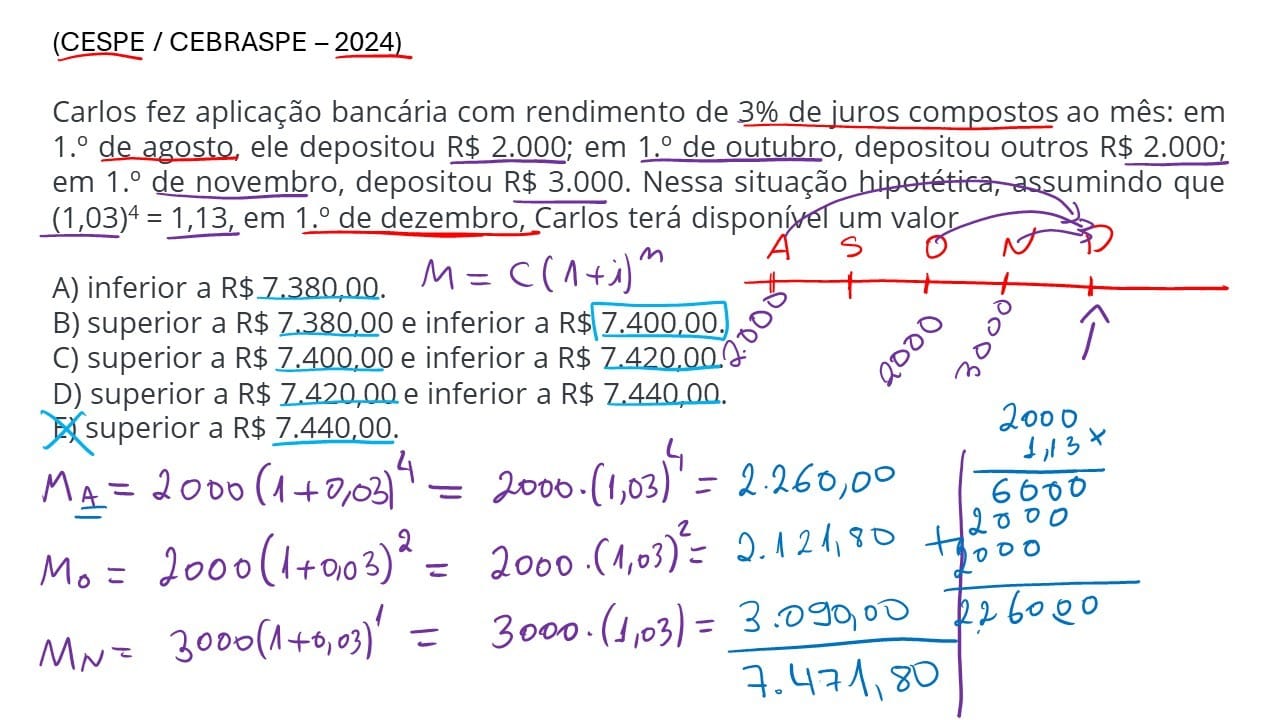 (CESPE / CEBRASPE – 2024)
Carlos fez aplicação bancária com rendimento de 3% de juros compostos ao mês: em
1.º de agosto, ele depositou R$ 2.000; em 1.º de outubro, depositou outros R$ 2.000;
em 1.º de novembro, depositou R$ 3.000. Nessa situação hipotética, assumindo que
(1,03)⁴ = 1,13, em 1.º de dezembro, Carlos terá disponível um valor
A S O N D
A) inferior a R$ 7.380,00.
M = C(1+i)ⁿ
B) superior a R$ 7.380,00 e inferior a R$ 7.400,00.
2.000 2000 3.000
C) superior a R$ 7.400,00 e inferior a R$ 7.420,00.
D) superior a R$ 7.420,00 e inferior a R$ 7.440,00.
E) superior a R$ 7.440,00.
M_A = 2000(1+0,03)⁴ = 2000.(1,03)⁴ = 2.260,00
M_O = 2000(1+0,03)² = 2000.(1,03)² = 2.121,80
M_N = 3000(1+0,03)¹ = 3000.(1,03) = 3.090,00
7.471,80
2000
1,13 x
6000
2000
+ 2000
226000